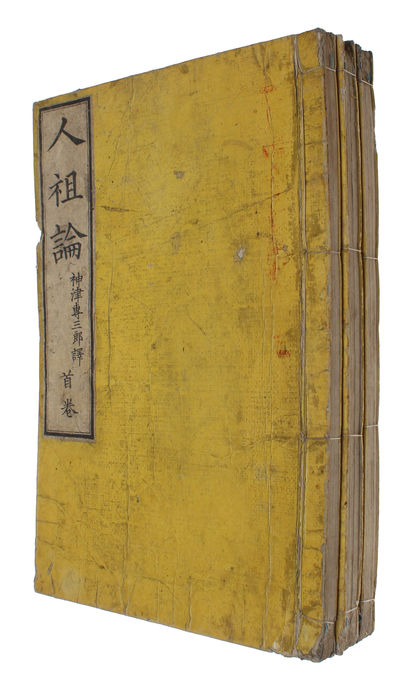 人祖論
神津專三郎譯
首卷